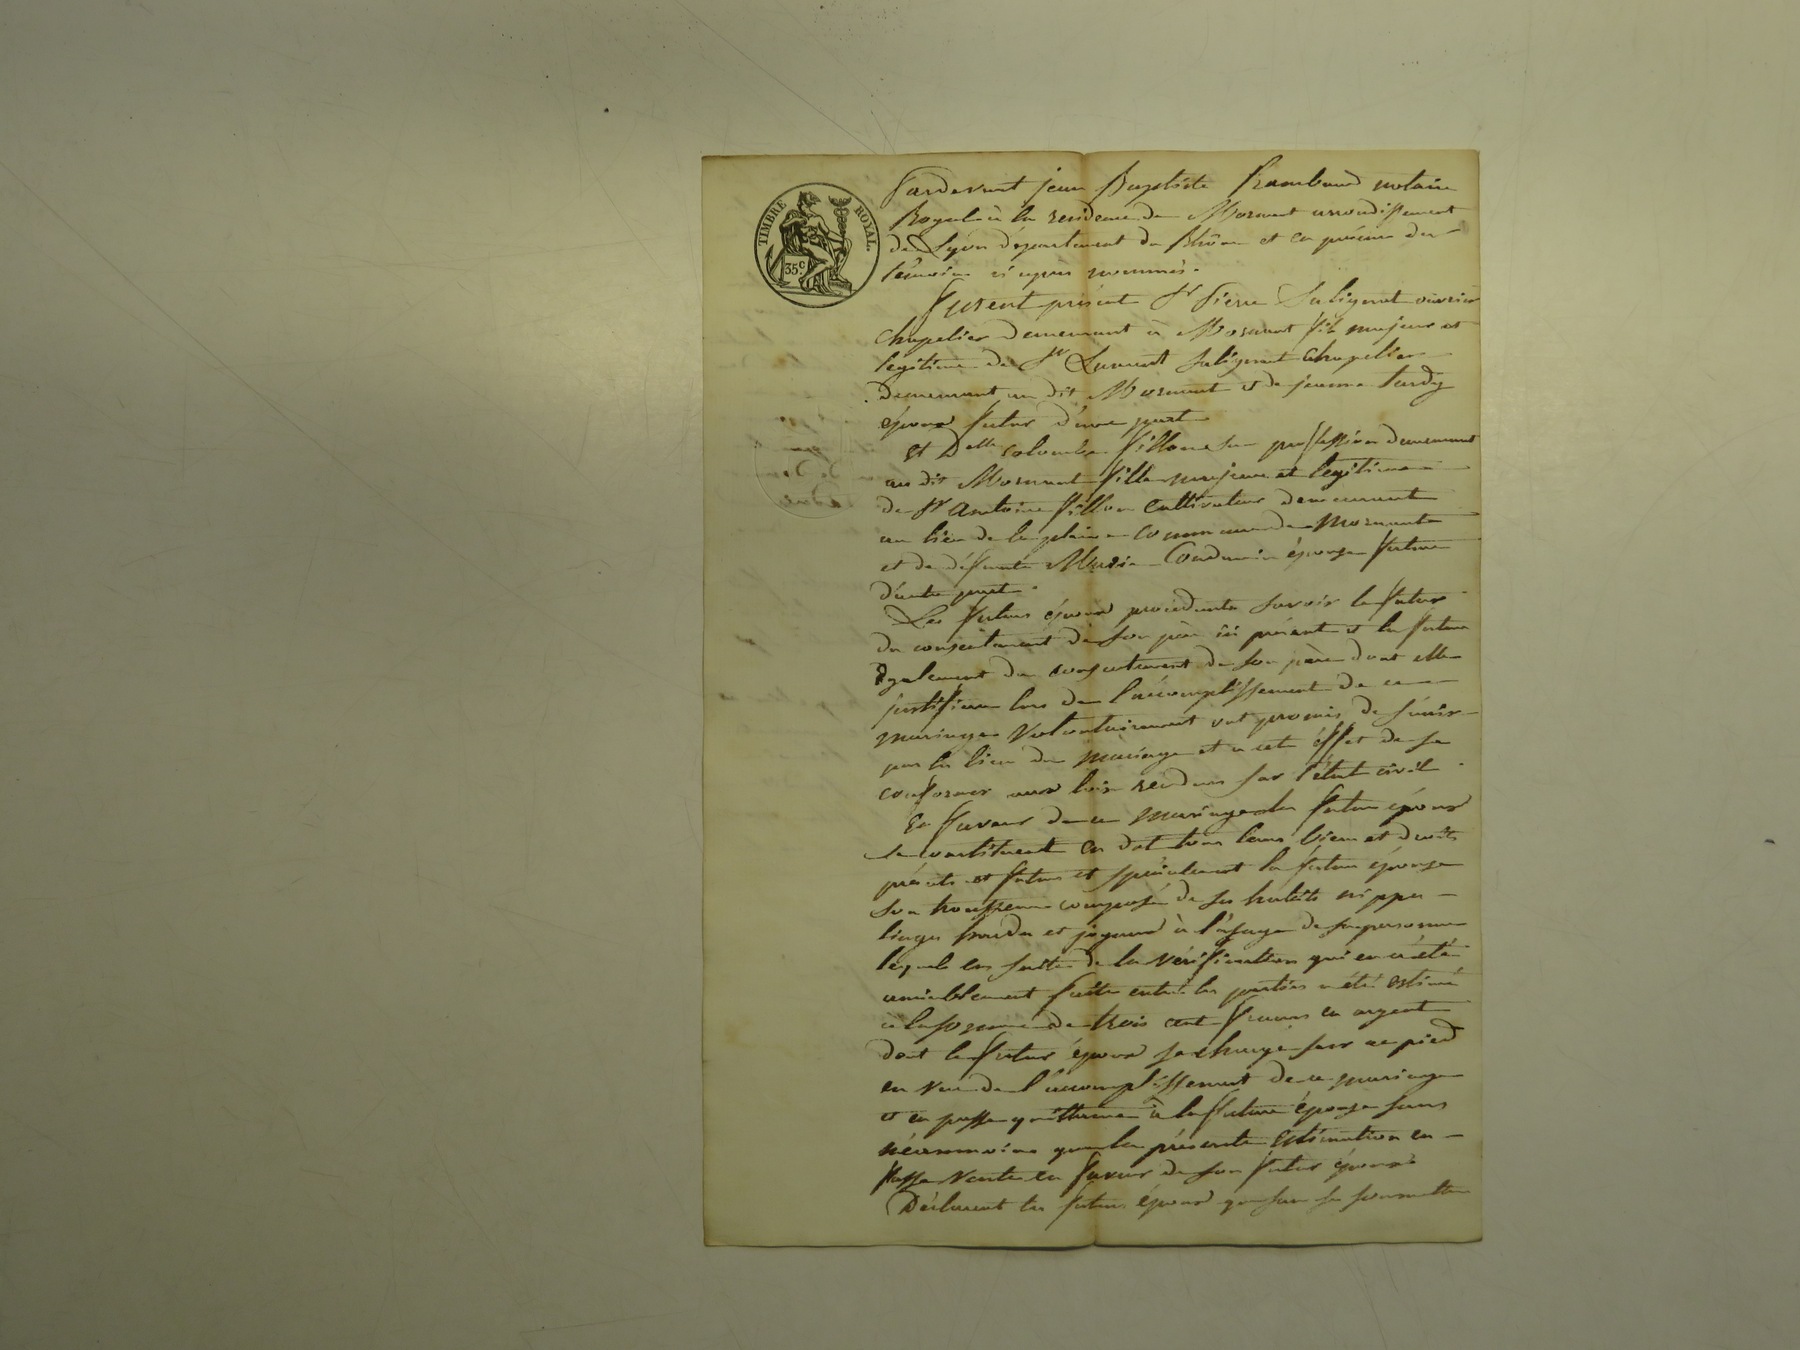 TIMBRE ROYAL.
35 c.
Pardevant jean Baptiste Rambaud notaire
Royal à la residence de Mornant arrondissement
de Lyon département du Rhône et en présence des
témoins ci après nommés.
Furent présent Sr Pierre Salignat ouvrier
chapelier demeurant à Mornant fils majeur et
legitime de Sr Laurent Salignat chapelier
demeurant au dit Mornant et de jeanne Tardy
époux futur d'une part
Et Delle colombe fillon sans profession demeurant
au dit Mornant fille majeure et legitime
de Sr Antoine fillon Cultivateur demeurant
au lieu de la plaine commune de Mornant
et de défunte Marie épouse future
d'autre part.
Les futurs époux procédants savoir le futur
du consentement de son père ici présent et la future
également du consentement de son père dont elle
justifiera lors de l'accomplissement de ce
mariage Volontairement ont promis de s'unir
par les liens du mariage et à cet éffet de se
conformer aux lois rendues sur l'état civil.
En faveur de ce mariage les futurs époux
se constituent en dot tous leurs biens et droits
présents et futurs et spécialement la future épouse
son trousseau composé de ses habits nippes
linges hardes et joyaux à l'usage de sa personne
lequel en suite de la vérification qui en a été
amiablement faite entre les parties a été estimé
à la somme de trois cent francs en argent
dont le futur époux se charge sur ce pied
en vue de l'accomplissement de ce mariage
et en passe quittance à la future épouse sans
néanmoins que la présente Estimation en
fasse vente en faveur de son futur époux.
Déclarent les futurs époux que sans se soumettre